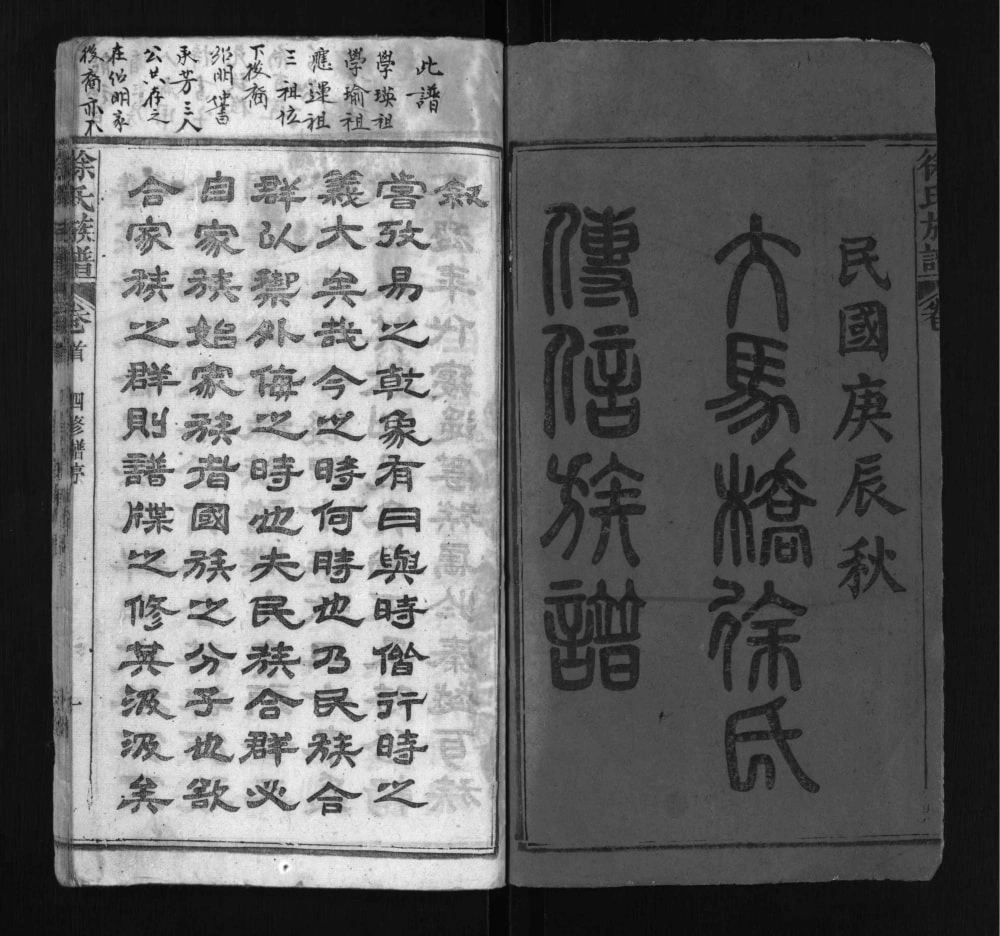 民國庚辰秋
大馬橋徐氏
傳信族譜
徐氏族譜
此譜
學瑛祖
學瑜祖
應運祖
三祖位
下後裔
紹明
承芳三人
公共存之
在紹明家
後裔亦不
敘
嘗攷易之乾象有曰與時偕行時之
義大矣哉今之時何時也乃民族合
群以禦外侮之時也夫民族合群必
自家族始家族者國族之分子也欲
合家族之群則譜牒之修其汲汲矣
徐氏族譜 卷首 四修譜序 一